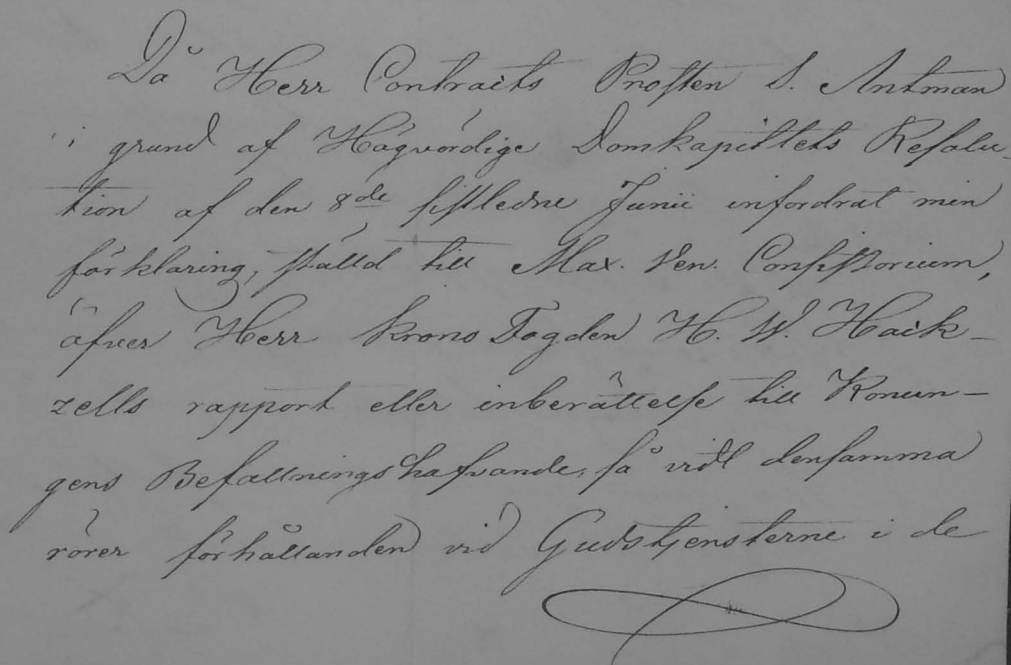 Då Herr Contracts Prosten S. Antman
i grund af Högvördige Domkapittlets Resolu-
tion af den 8de sistledne Junii infordrat min
förklaring, ställd till Max. Ven. Consistorium,
öfver Herr Krono Fogden H. W. Haik-
zells rapport eller inberättelse till Konun-
gens Befallningshafvande, så vidt densamma
rörer förhållanden vid Gudstjensterne i de